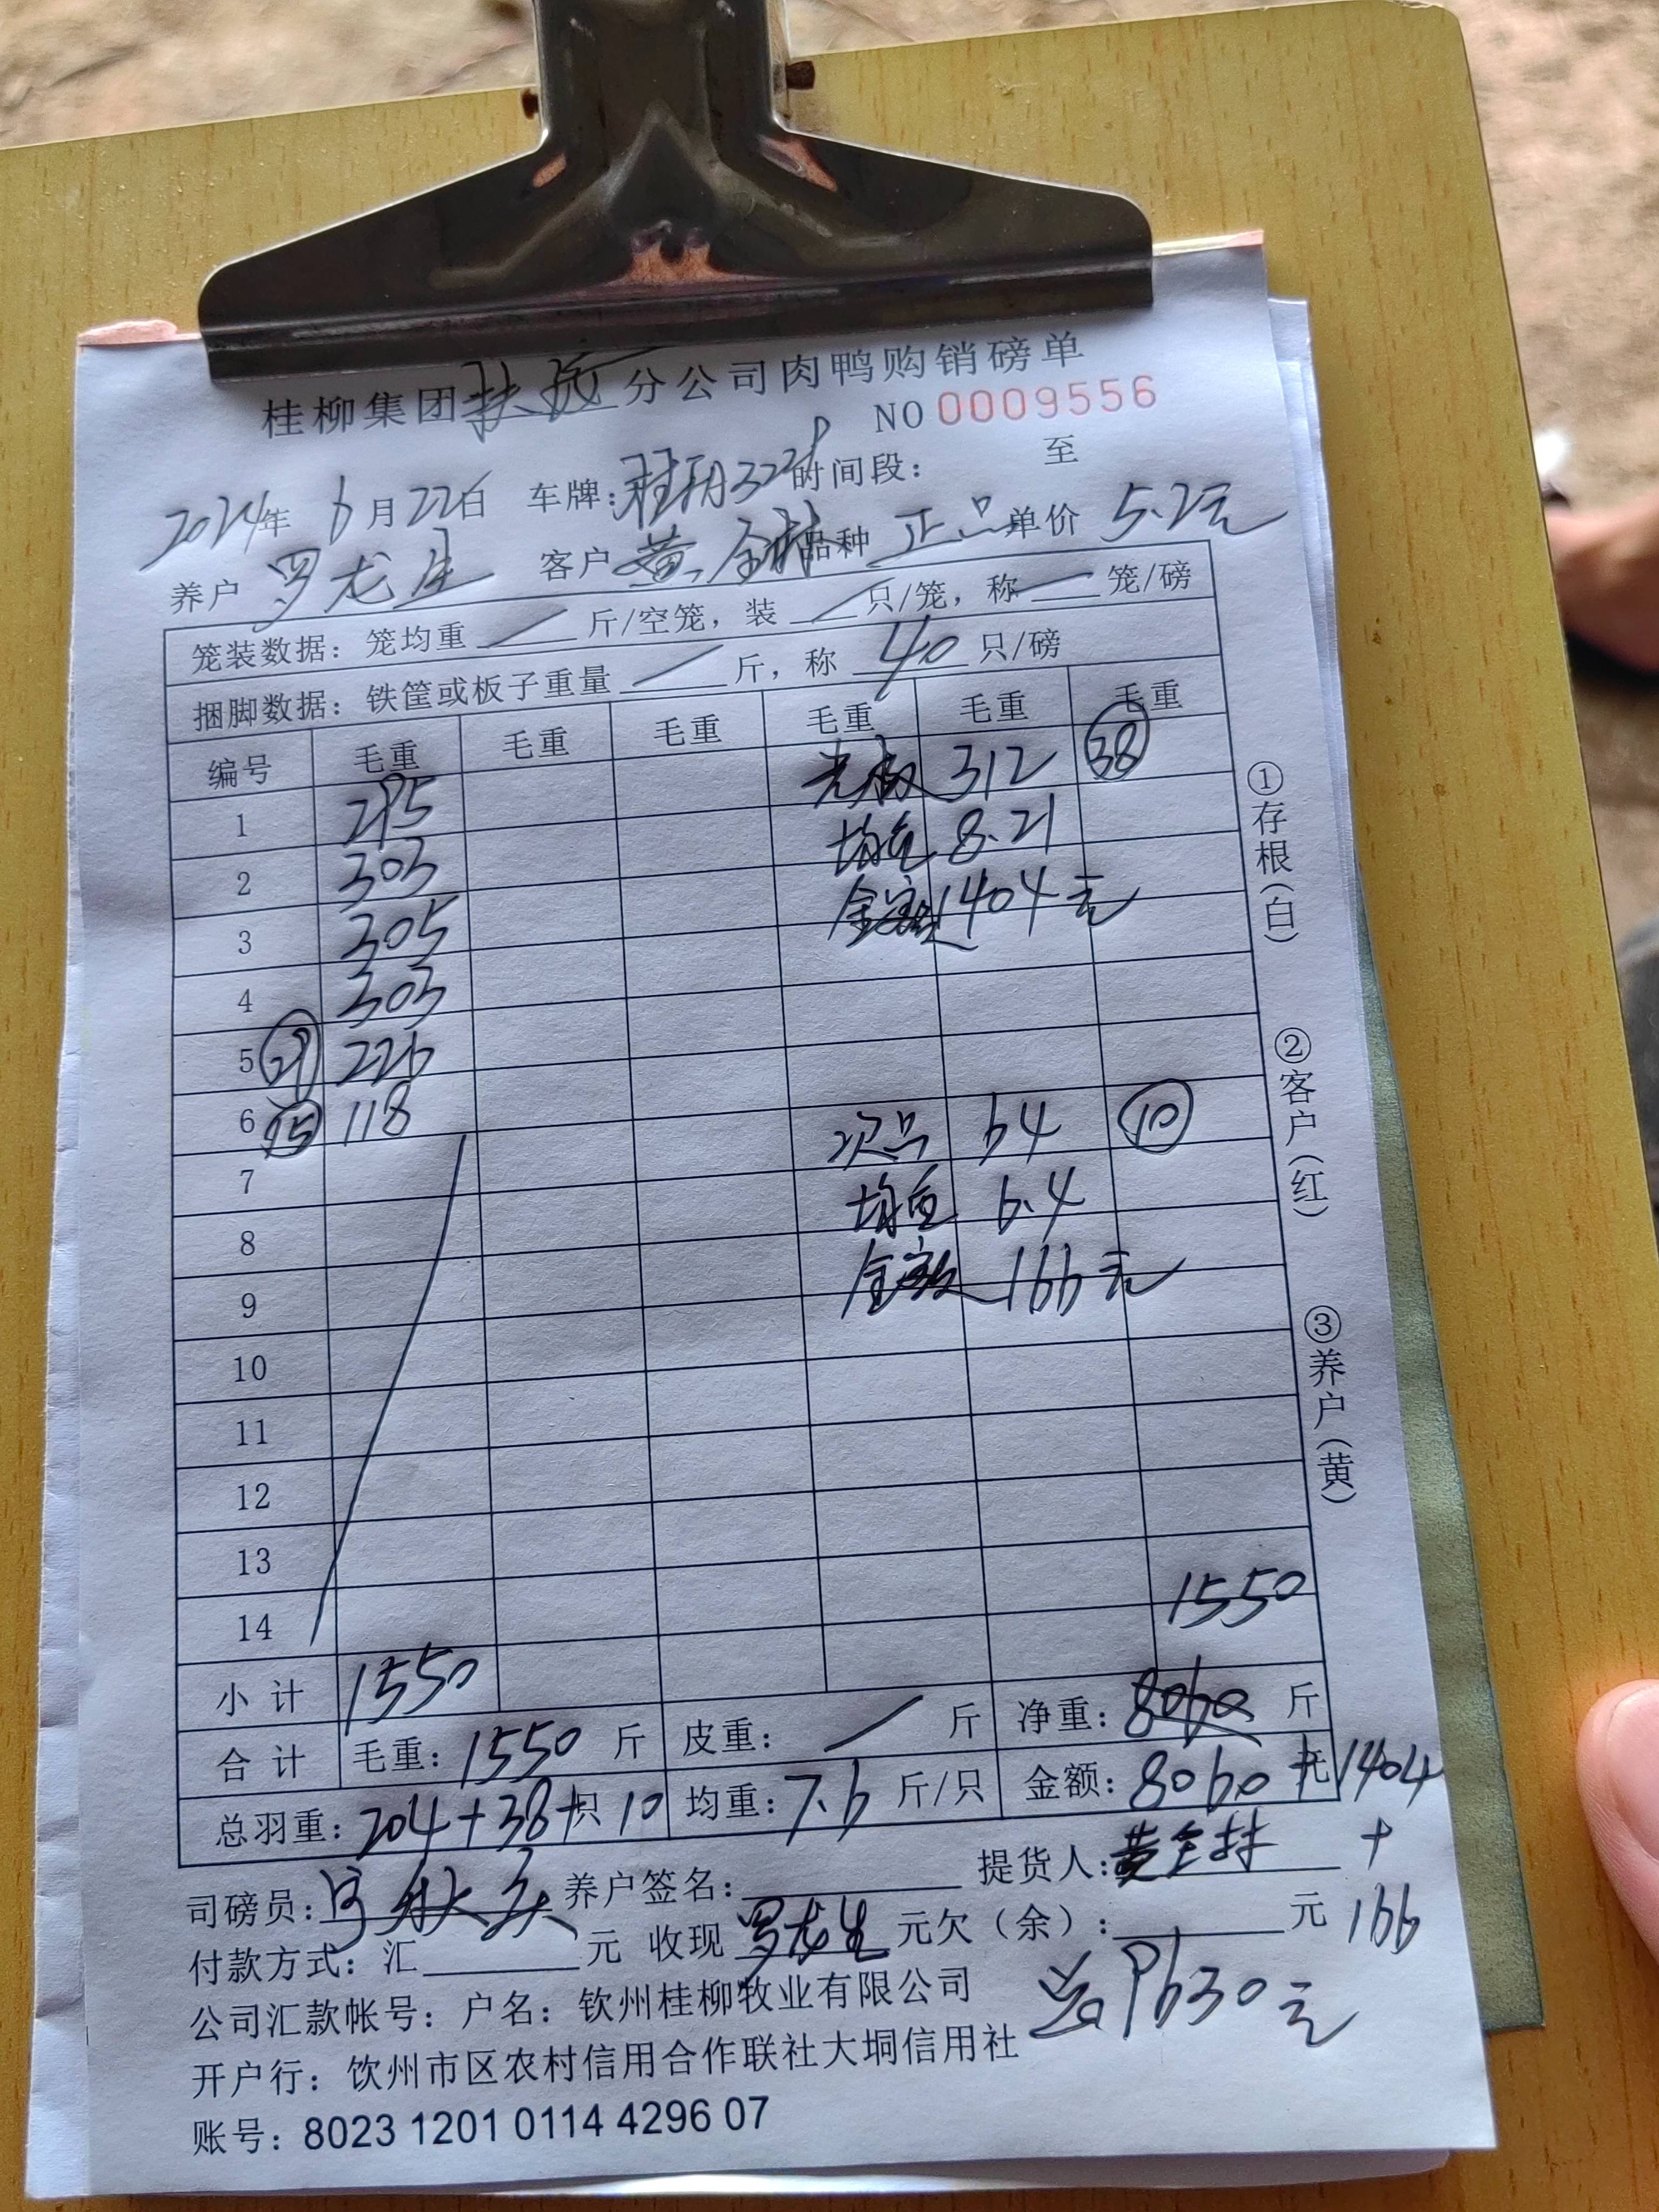 桂柳集团 分公司肉鸭购销磅单
NO 0009556
2024年 6月22日 车牌: 时间段: 至
养户 罗龙生 客户 黄金林 品种 正品 单价 5.2元
笼装数据: 笼均重 斤/空笼, 装 只/笼, 称 笼/磅
捆脚数据: 铁筐或板子重量 斤, 称 40 只/磅
编号 毛重 毛重 毛重 毛重 毛重 毛重
1 295 312 38
2 303 均重 8.21
3 305 金额 1404元
4 303
5 226
6 15 118 次品 64 10
7 均重 6.4
8 金额 166元
9
10
11
12
13
14 1550
小计 1550
合计 毛重: 1550 斤 皮重: 斤 净重: 8060 斤
总羽重: 204+38+只 10 均重: 7.6 斤/只 金额: 8060 元 +1404
+
166
司磅员: 养户签名: 提货人: 黄金林
付款方式: 汇 元 收现 罗龙生 元欠(余): 元
9630元
公司汇款帐号: 户名: 钦州桂柳牧业有限公司
开户行: 钦州市区农村信用合作联社大垌信用社
账号: 8023 1201 0114 4296 07
①存根(白)
②客户(红)
③养户(黄)